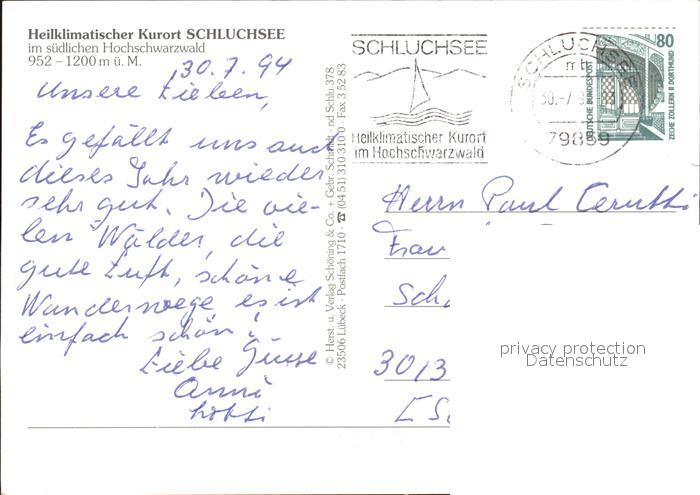 Heilklimatischer Kurort SCHLUCHSEE
im südlichen Hochschwarzwald
952 – 1200 m ü. M.
30.7.94
Unsere Lieben,
Es gefällt uns auch
dieses Jahr wieder
sehr gut. Die vie-
len Wälder, die
gute Luft, schöne
Wanderwege, es ist
einfach schön!
Liebe Grüsse
Anni
© Herst. u. Verlag Schöning & Co. + Gebr. Schmidt
23506 Lübeck · Postfach 1710 · ☎ (04 51) 310 310 · Fax 3 52 83
nd Schlu 378
SCHLUCHSEE
Heilklimatischer Kurort
im Hochschwarzwald
SCHLUCHSEE
mb
79859
80
DEUTSCHE BUNDESPOST
ZECHE ZOLLERN II DORTMUND
Herrn Paul
Frau
Sch
3013
privacy protection
Datenschutz